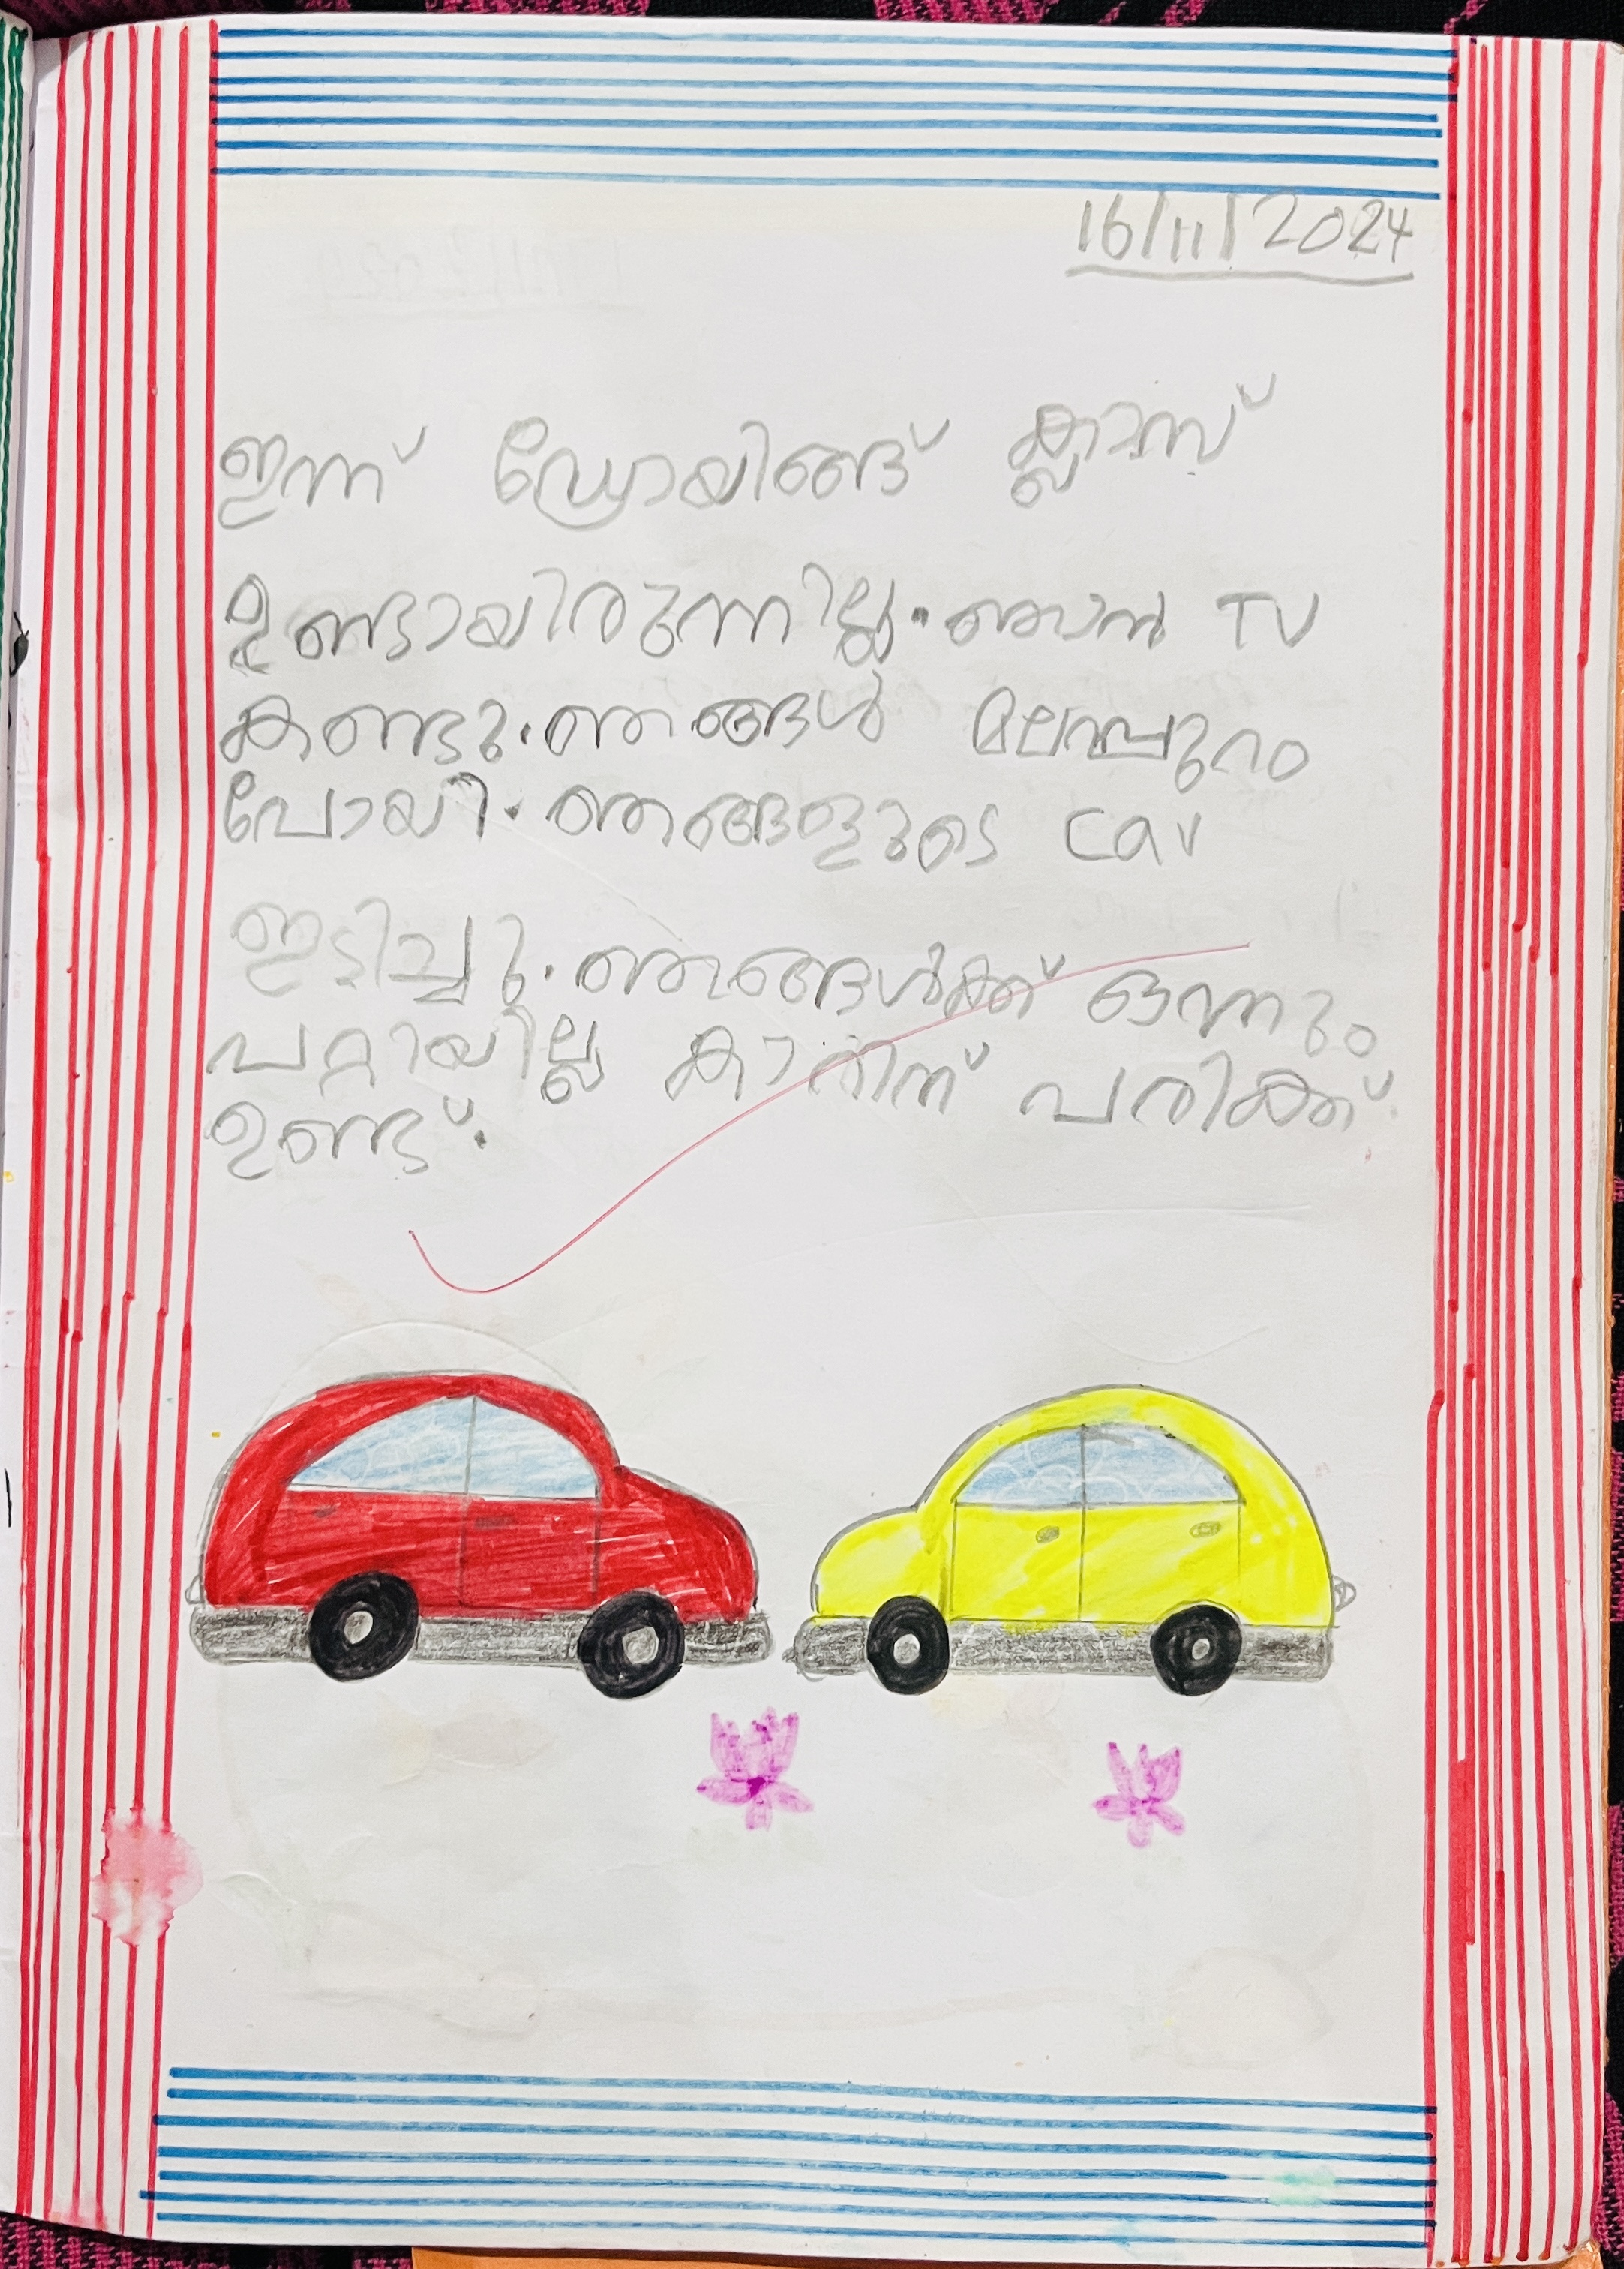 16/11/2024
ഇന്ന് ഡ്രോയിങ്ങ് ക്ലാസ്
ഉണ്ടായിരുന്നില്ല. ഞാൻ TV
കണ്ടു. ഞങ്ങൾ മലപ്പുറം
പോയി. ഞങ്ങളുടെ car
ഇടിച്ചു. ഞങ്ങൾക്ക് ഒന്നും
പറ്റിയില്ല കാറിന് പരിക്ക്
ഉണ്ട്.